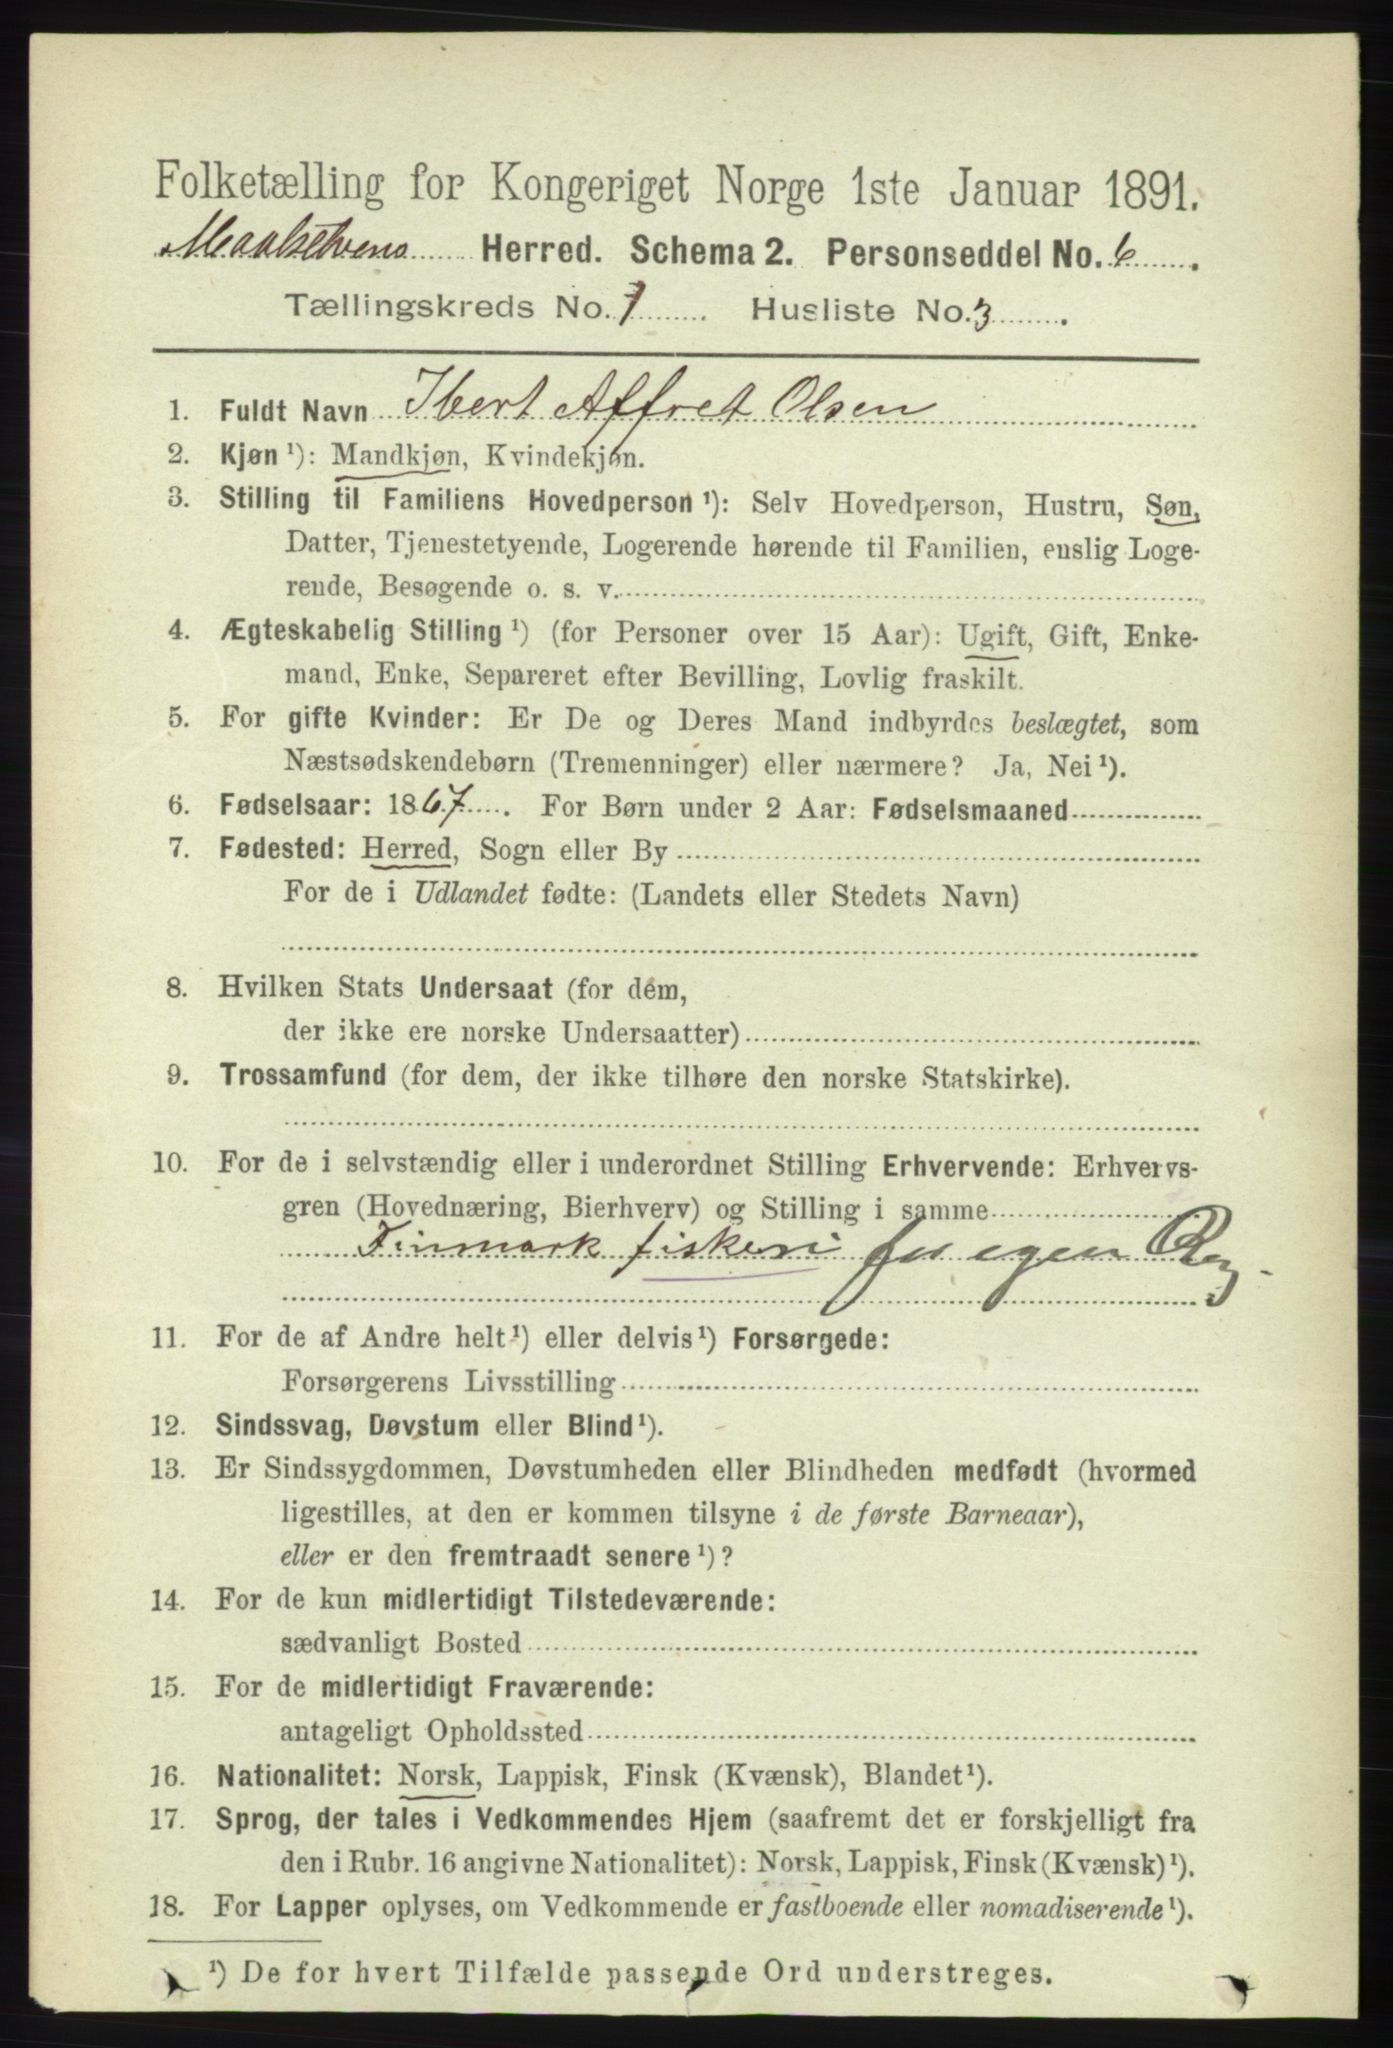 Folketælling for Kongeriget Norge 1ste Januar 1891.
Maalselvens Herred. Schema 2. Personseddel No. 6
Tællingskreds No. 7 Husliste No. 3
1. Fuldt Navn Ibert Affret Olsen
2. Kjøn ¹): Mandkjøn, Kvindekjøn.
3. Stilling til Familiens Hovedperson ¹): Selv Hovedperson, Hustru, Søn,
Datter, Tjenestetyende, Logerende hørende til Familien, enslig Loge-
rende, Besøgende o. s. v.
4. Ægteskabelig Stilling ¹) (for Personer over 15 Aar): Ugift, Gift, Enke-
mand, Enke, Separeret efter Bevilling, Lovlig fraskilt.
5. For gifte Kvinder: Er De og Deres Mand indbyrdes beslægtet, som
Næstsødskendebørn (Tremenninger) eller nærmere? Ja, Nei ¹).
6. Fødselsaar: 1867. For Børn under 2 Aar: Fødselsmaaned
7. Fødested: Herred, Sogn eller By
For de i Udlandet fødte: (Landets eller Stedets Navn)
8. Hvilken Stats Undersaat (for dem,
der ikke ere norske Undersaatter)
9. Trossamfund (for dem, der ikke tilhøre den norske Statskirke).
10. For de i selvstændig eller i underordnet Stilling Erhvervende: Erhvervs-
gren (Hovednæring, Bierhverv) og Stilling i samme
Finmark fiskeri for egen Reg
11. For de af Andre helt ¹) eller delvis ¹) Forsørgede:
Forsørgerens Livsstilling
12. Sindssvag, Døvstum eller Blind ¹).
13. Er Sindssygdommen, Døvstumheden eller Blindheden medfødt (hvormed
ligestilles, at den er kommen tilsyne i de første Barneaar),
eller er den fremtraadt senere ¹)?
14. For de kun midlertidigt Tilstedeværende:
sædvanligt Bosted
15. For de midlertidigt Fraværende:
antageligt Opholdssted
16. Nationalitet: Norsk, Lappisk, Finsk (Kvænsk), Blandet ¹).
17. Sprog, der tales i Vedkommendes Hjem (saafremt det er forskjelligt fra
den i Rubr. 16 angivne Nationalitet): Norsk, Lappisk, Finsk (Kvænsk) ¹).
18. For Lapper oplyses, om Vedkommende er fastboende eller nomadiserende ¹).
¹) De for hvert Tilfælde passende Ord understreges.